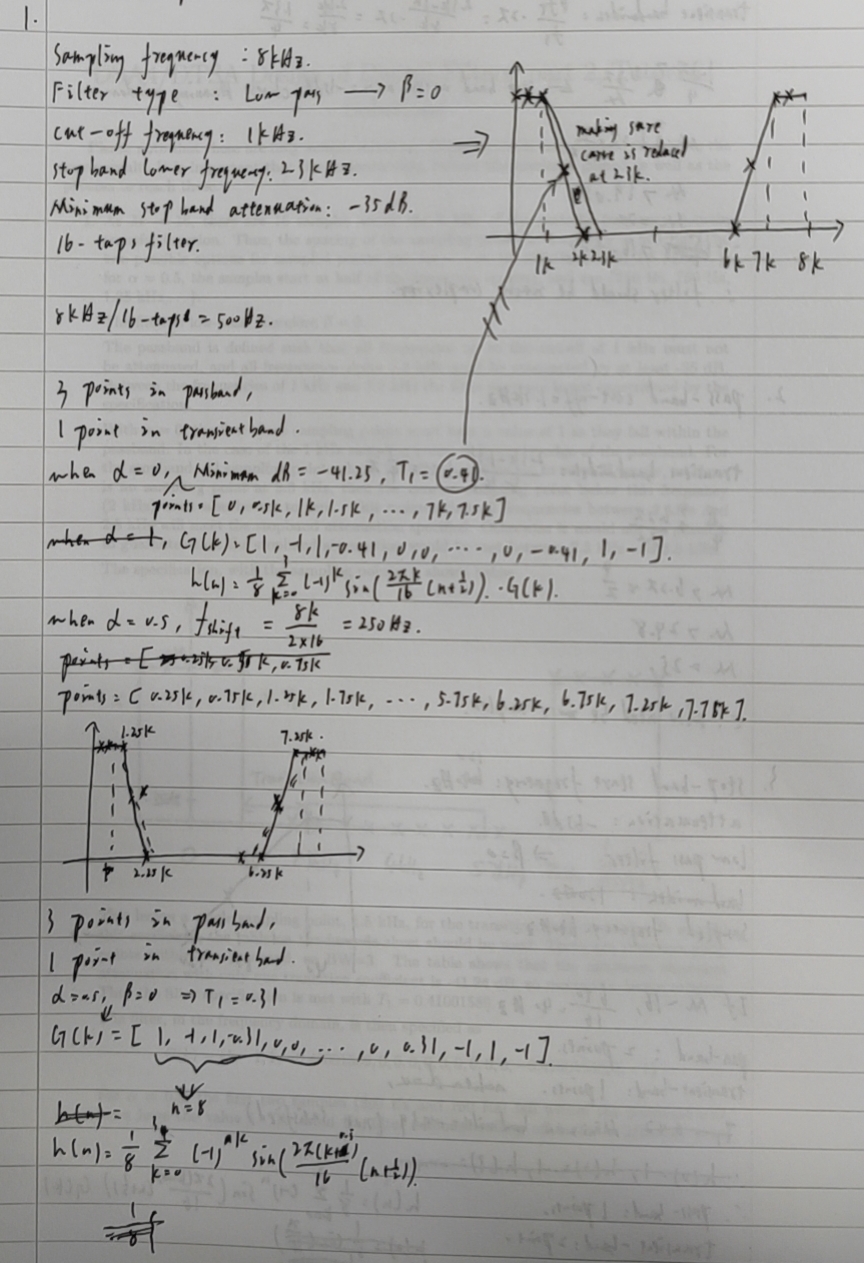 1.
Sampling frequency : 8kHz.
Filter type : Low pass → β=0
cut-off frequency: 1kHz.
stopband lower frequency: 2.3kHz.
Minimum stop band attenuation: -35dB.
16-taps filter.
⇒
making sure
curve is reduced
at 2.3k.
1k 2k 2.3k 6k 7k 8k
8kHz/16-taps = 500Hz.
3 points in passband,
1 point in transient band.
when α=0, Minimum dB = -41.25, T₁ = 0.41.
points = [0, 0.5k, 1k, 1.5k, ..., 7k, 7.5k]
when α=1, G(k) = [1, -1, 1, -0.41, 0, 0, ..., 0, -0.41, 1, -1].
h(n) = 1/8 Σ k=0 (-1)^k sin(2πk/16 (n+1/2)) · G(k).
when α=0.5, fshift = 8k/(2×16) = 250Hz.
points = [ k, 0.75k
points = [ 0.25k, 0.75k, 1.25k, 1.75k, ..., 5.75k, 6.25k, 6.75k, 7.25k, 7.75k].
1.25k 7.25k.
2.25k 6.25k
3 points in passband,
1 point in transient band.
α=0.5, β=0 ⇒ T₁=0.31
G(k) = [1, -1, 1, -0.31, 0, 0, ..., 0, 0.31, -1, 1, -1].
h(n) =
n=8
h(n) = 1/8 Σ k=0 (-1)^k sin(2π(k+0.5)/16 (n+1/2)).
1/8